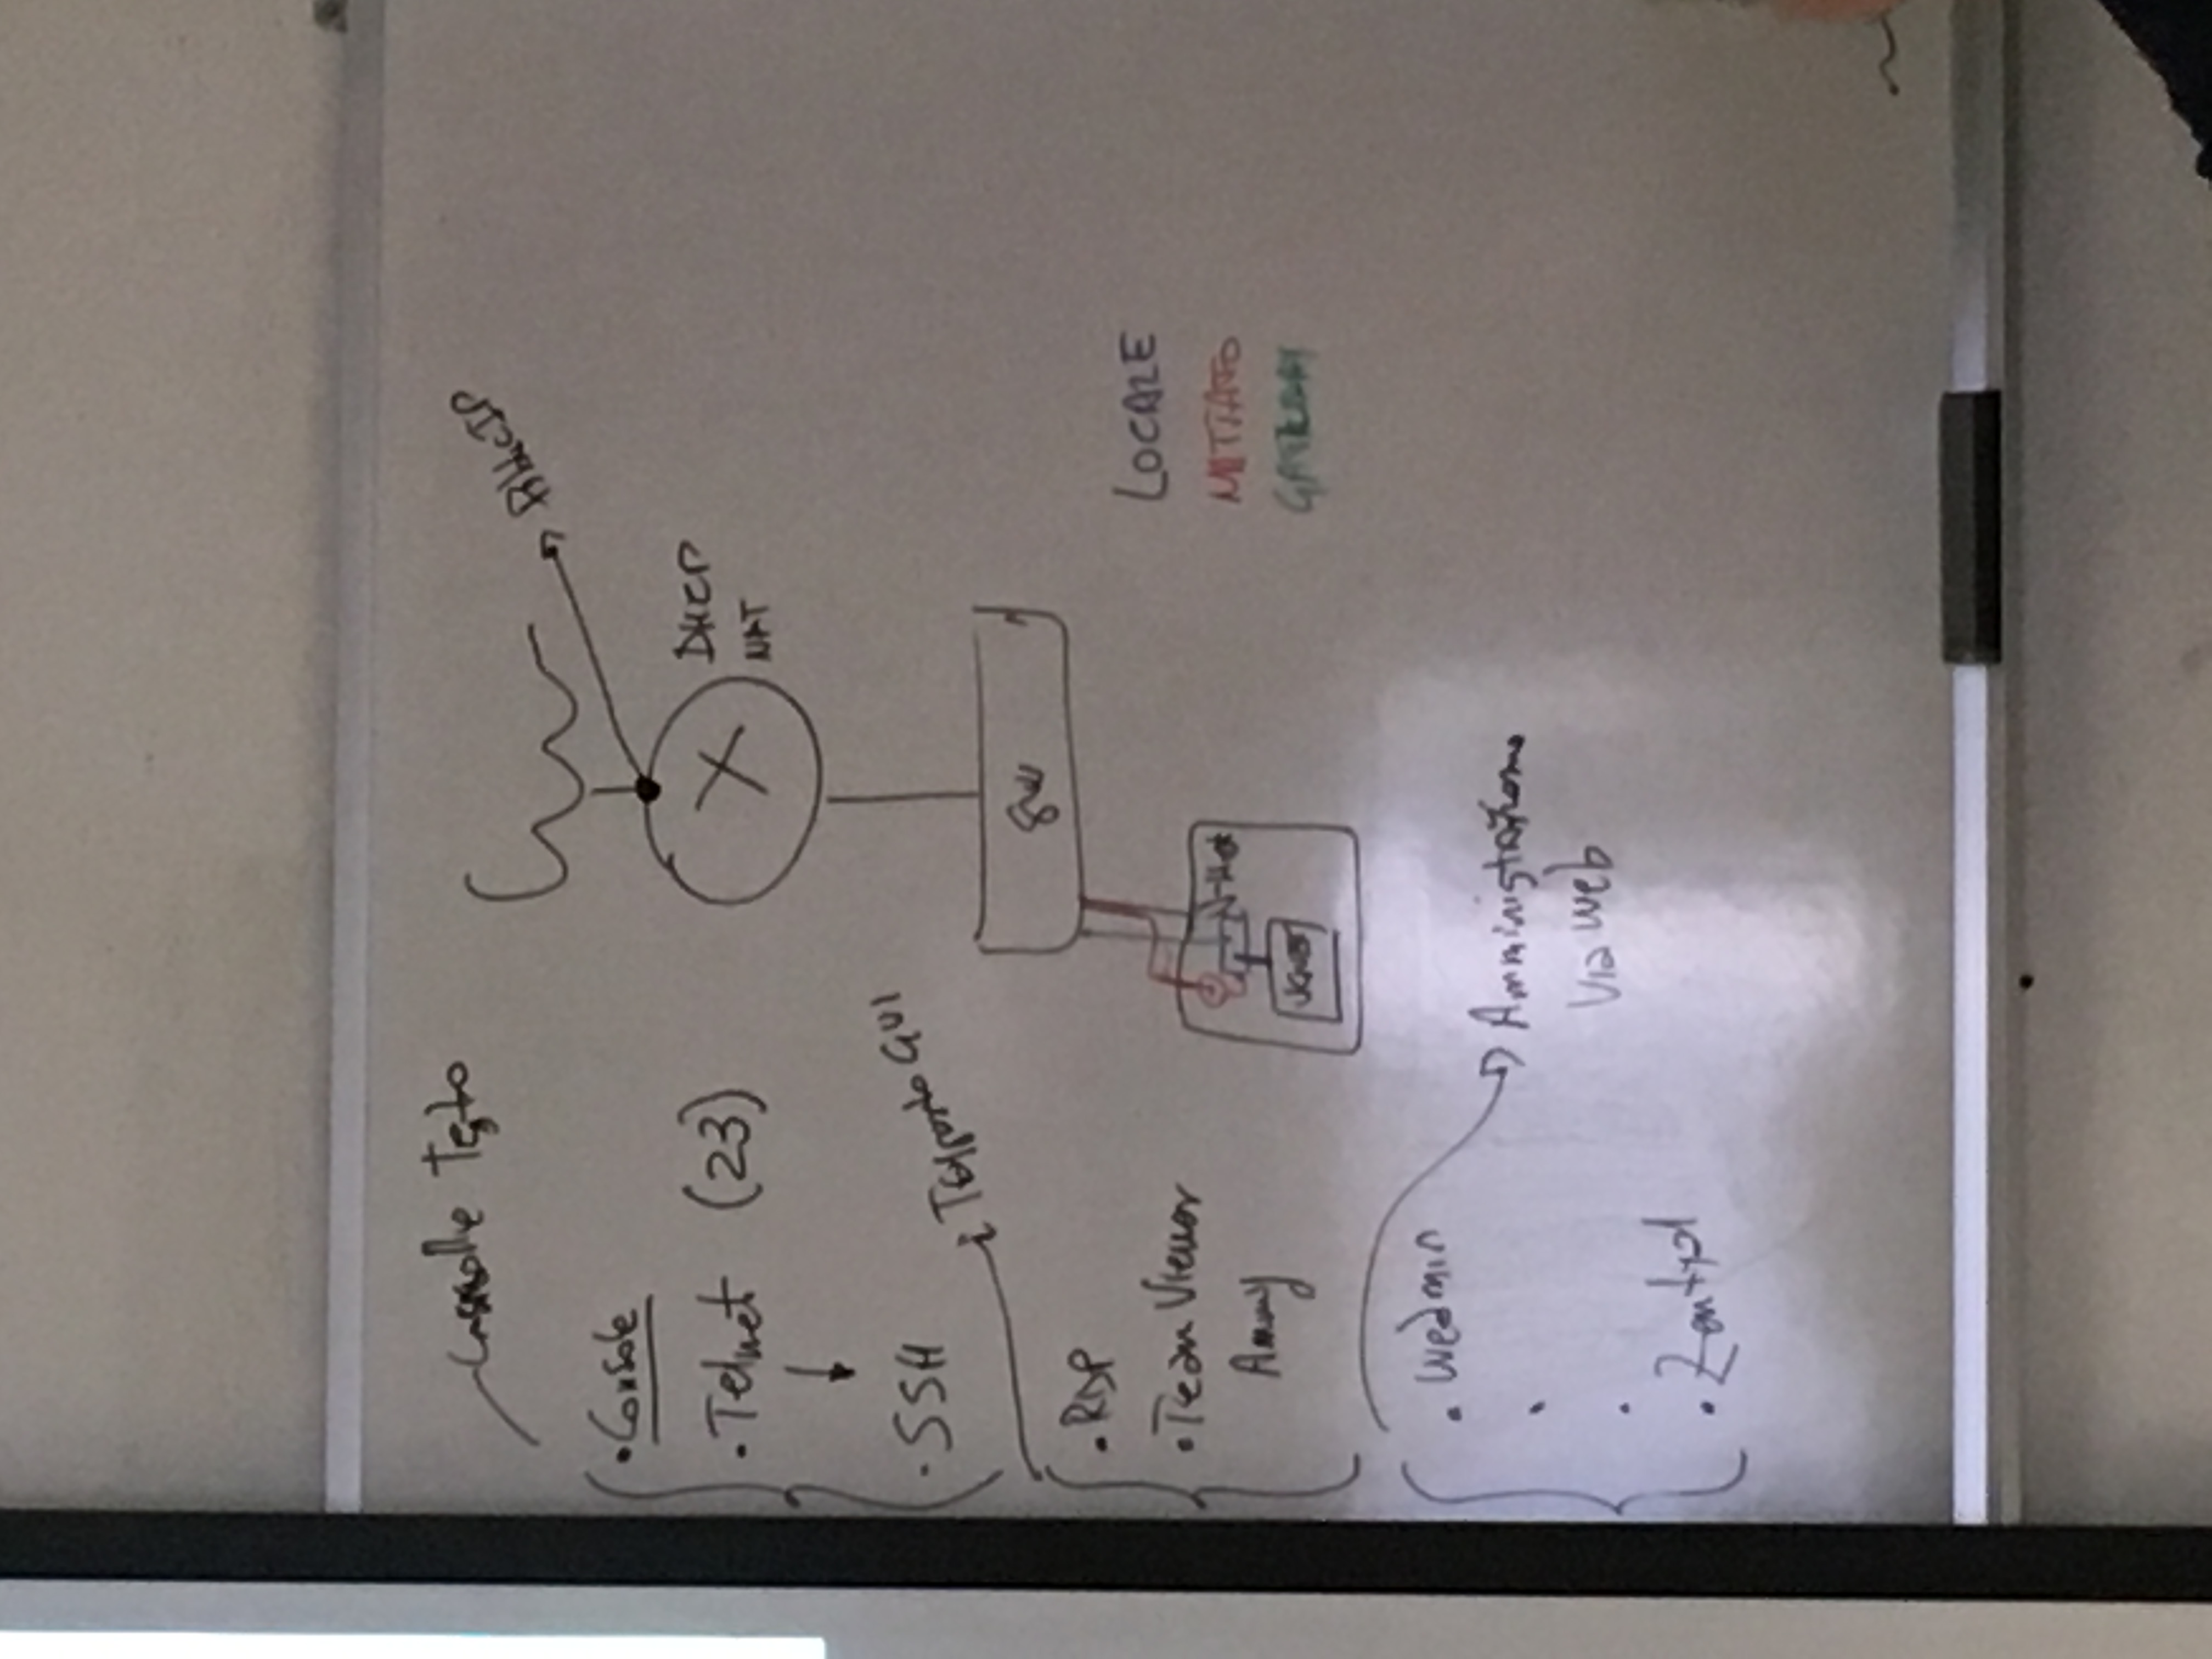 Consolle Testo
• Console
• Telnet (23)
• SSH
Trasporto GUI
• RDP
• Team Viewer
Ammy
• Wedmin
• Zentyal
Amministrazione
Via web
Public IP
DHCP
NAT
SW
V-Host
LOCALE
NATTATO
GATEWAY